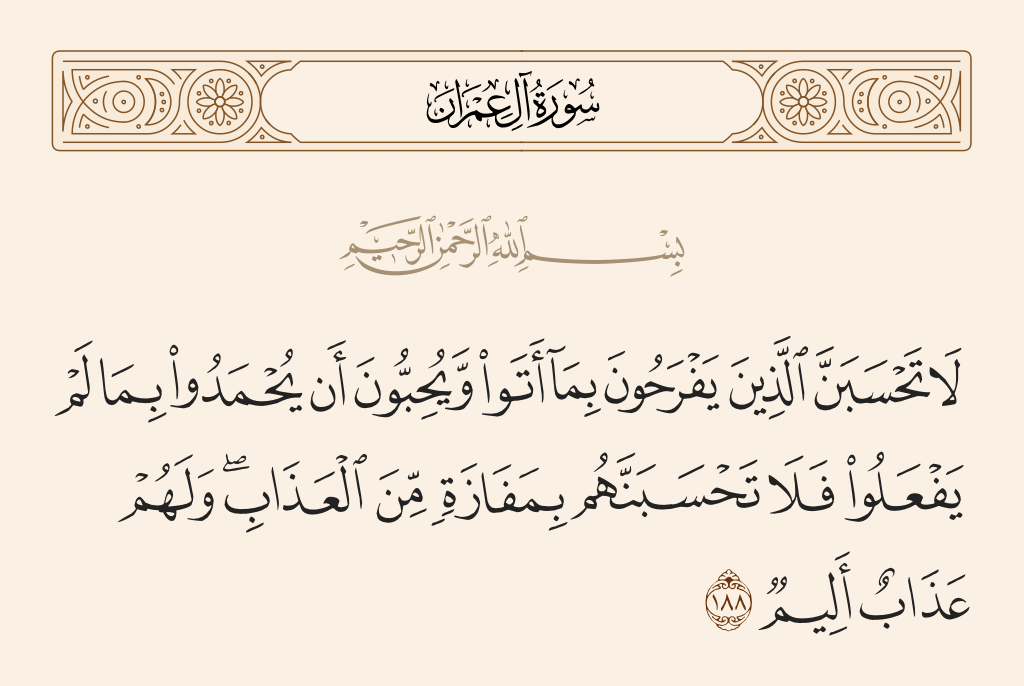 سُورَةُ آلِ عِمْرَانَ
بِسْمِ ٱللَّهِ ٱلرَّحْمَٰنِ ٱلرَّحِيمِ
لَا تَحْسَبَنَّ ٱلَّذِينَ يَفْرَحُونَ بِمَآ أَتَوا۟ وَّيُحِبُّونَ أَن يُحْمَدُوا۟ بِمَا لَمْ
يَفْعَلُوا۟ فَلَا تَحْسَبَنَّهُم بِمَفَازَةٍ مِّنَ ٱلْعَذَابِ ۖ وَلَهُمْ
عَذَابٌ أَلِيمٌ ١٨٨